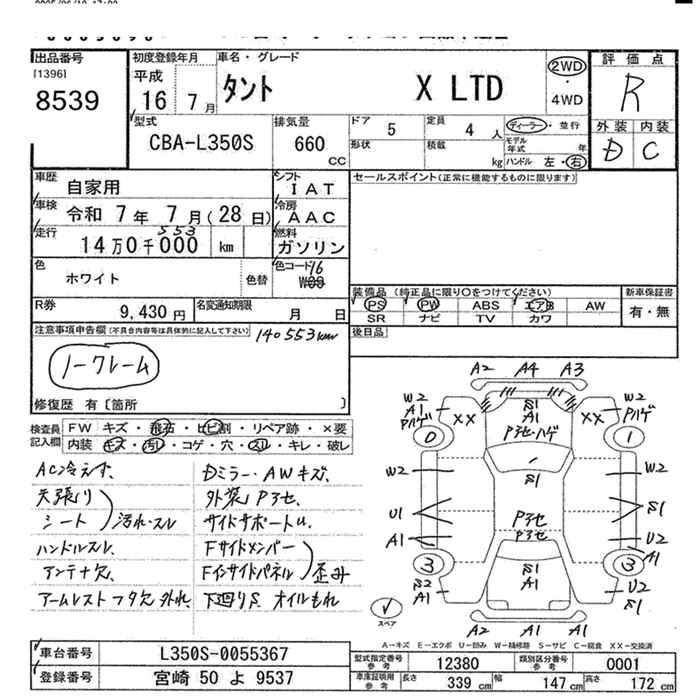 出品番号
[1396]
8539
初度登録年月
平成
16 7 月
車名・グレード
タント X LTD
2WD
・
4WD
評価点
R
外装 内装
D C
型式
CBA-L350S
排気量
660
CC
ドア 5
定員 4 人
形状
積載 kg
ディーラー・並行
モデル年式 年
ハンドル 左・右
車歴 自家用
車検 令和 7 年 7 月 ( 28 日)
走行 14 万 0 千 000 km
553
シフト
IAT
冷房
AAC
燃料
ガソリン
色
ホワイト
色替
色コード 16
W09
R券 9,430 円
名変通知期限 月 日
セールスポイント(正常に機能するものに限ります)
装備品 (純正品に限り○をつけてください)
PS PW ABS エアB AW
SR ナビ TV カワ
新車保証書
有・無
後日品
注意事項申告欄(不具合内容等は具体的に記入して下さい)
140553km
ノークレーム
修復歴 有 [箇所 ]
検査員記入欄
FW キズ・飛石・ヒビ割・リペア跡・×要
内装 キズ・汚れ・コゲ・穴・スレ・キレ・破レ
AC冷えず、
天張り
シート 汚れ・スレ
ハンドルスレ、
アンテナ欠
アームレストフタ欠 外れ
Dミラー・AWキズ、
外装 Pヨセ、
サイドサポートu、
Fサイドメンバー
Fインサイドパネル 歪み
下廻りS オイルもれ
A2 A4 A3
W2 A1 Pハゲ
XX
S1
A1
Pヨセ・ハゲ
XX
W2
Pハゲ
0
1
W2
S1
W2
U1
Pヨセ
Pヨセ
S1
A1
U2
A1
3
S1
A1
3
S2
A1
U2
S1
A2 A1 A1
スペア
A-キズ E-エクボ U-凹み W-補修跡 S-サビ C-腐食 XX-交換済
車台番号 L350S-0055367
登録番号 宮崎 50 よ 9537
型式指定番号 参考 12380
類別区分番号 参考 0001
車庫証明用 参考 長さ 339 cm 幅 147 cm 高さ 172 cm